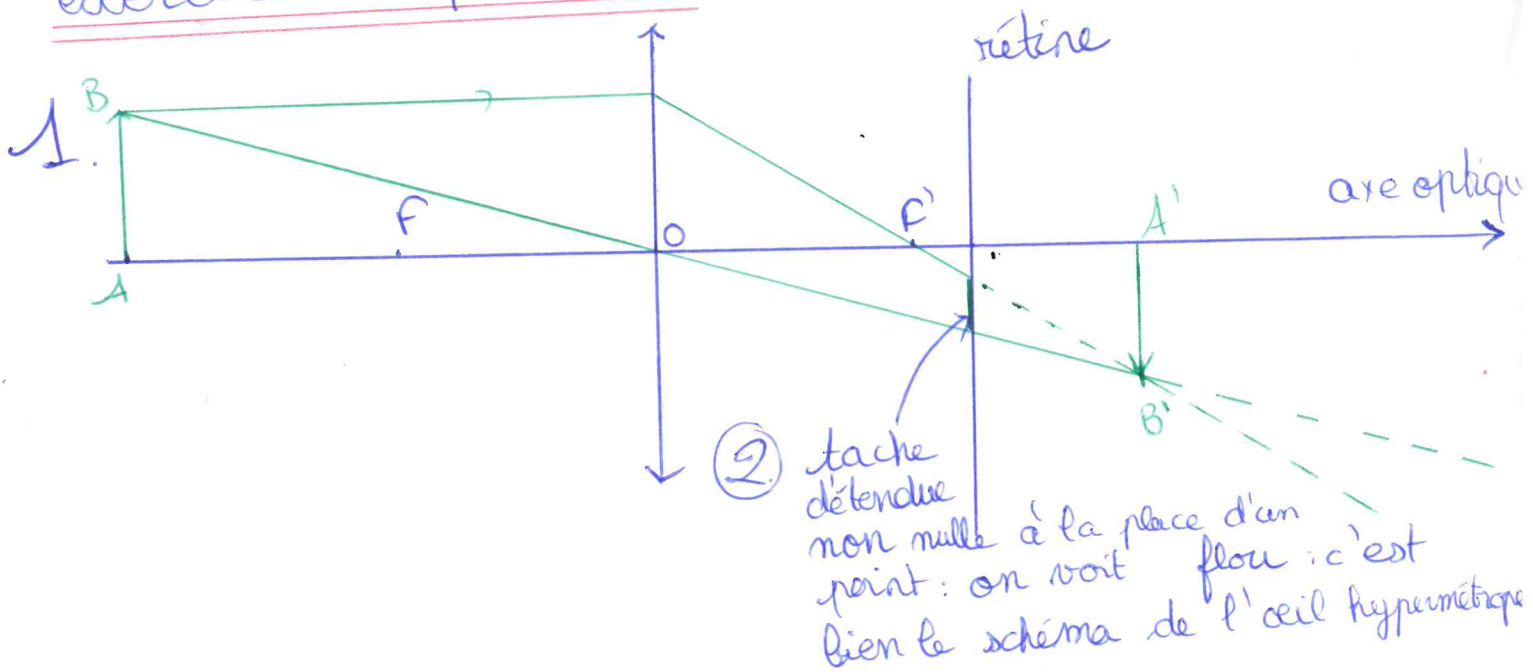 rétine
1.
B
F
O
F'
A'
axe optiqu
A
B'
2. tache
détendue
non nulle à la place d'un
point : on voit flou : c'est
bien le schéma de l'œil hypermétrope